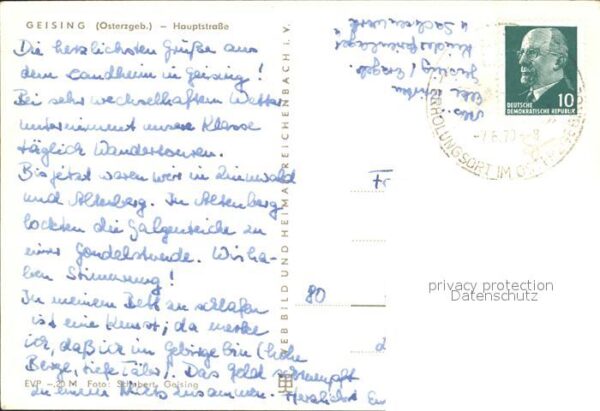 GEISING (Osterzgeb.) – Hauptstraße
Die herzlichsten Grüße aus
dem Landheim in Geising!
Bei sehr wechselhaftem Wetter
unternimmt unsere Klasse
täglich Wandertouren.
Bis jetzt waren wir in Zinnwald
und Altenberg. In Altenberg
lockten die Galgenteiche zu
einer Gondelstunde. Wir ha-
ben Stimmung!
In meinem Bett zu schlafen
ist eine Kunst; da merke
ich, daß ich im Gebirge bin (hohe
Berge, tiefe Täler). Das Geld schrumpft
zu einem Nichts zusammen. Herzlichst
EVP –.20 M Foto: Schubert, Geising
BILD UND HEIMAT REICHENBACH i. V.
Abs.
Geising / Erzgeb.
Kinderferienlager
Sachsenwerk
DEUTSCHE
DEMOKRATISCHE REPUBLIK
10
ERHOLUNGSORT IM OSTERZGEBIRGE
Fr
80
privacy protection
Datenschutz